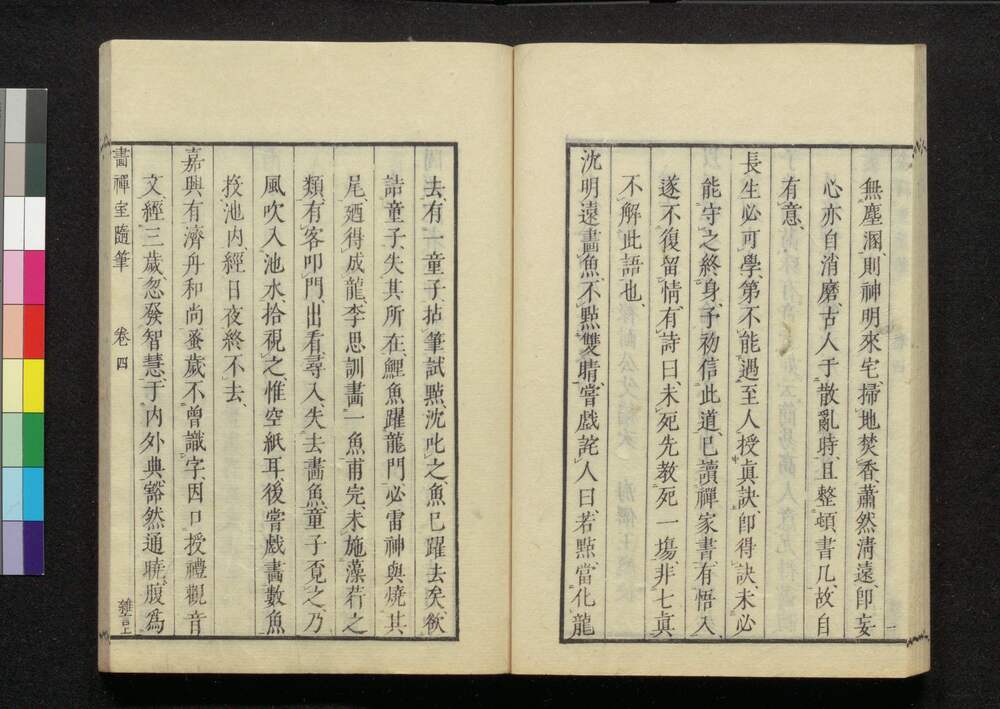 無塵溷、則神明來宅、掃地焚香、蕭然淸遠、卽妄
心亦自消磨、古人于散亂時、且整頓書几、故自
有意、
長生必可學、第不能遇至人授眞訣、卽得訣、未必
能守之終身、予初信此道、已讀禪家書、有悟入、
遂不復留情、有詩曰、未死先教死一塲、非七眞
不解此語也、
沈明遠畵魚、不點雙睛、嘗戲詫人曰、若點、當化龍
去、有一童子、拈筆試點、沈叱之、魚已躍去矣、欲
詰童子、失其所在、鯉魚躍龍門、必雷神與燒其
尾、廼得成龍、李思訓畵一魚甫完、未施藻荇之
類、有客叩門、出看、尋入、失去畵魚、童子覓之、乃
風吹入池水、拾視之、惟空紙耳、後嘗戲畵數魚
投池內、經日夜終不去、
嘉興有濟舟和尙、蚤歲不曾識字、因口授禮觀音
文、經三歲、忽發智慧、于內外典、豁然通曉、腹爲
畵禪室隨筆 卷四 雜言上
一